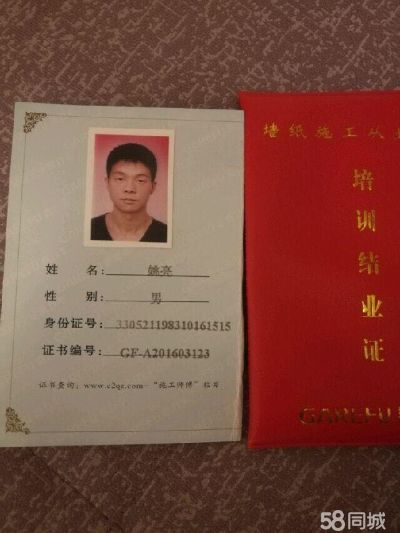 姓 名: 姚亮
性 别: 男
身份证号: 330521198310161515
证书编号: GF-A201603123
证书查询: www.c2qz.com "施工师傅" 栏目
墙纸施工从
培训结业证
58同城